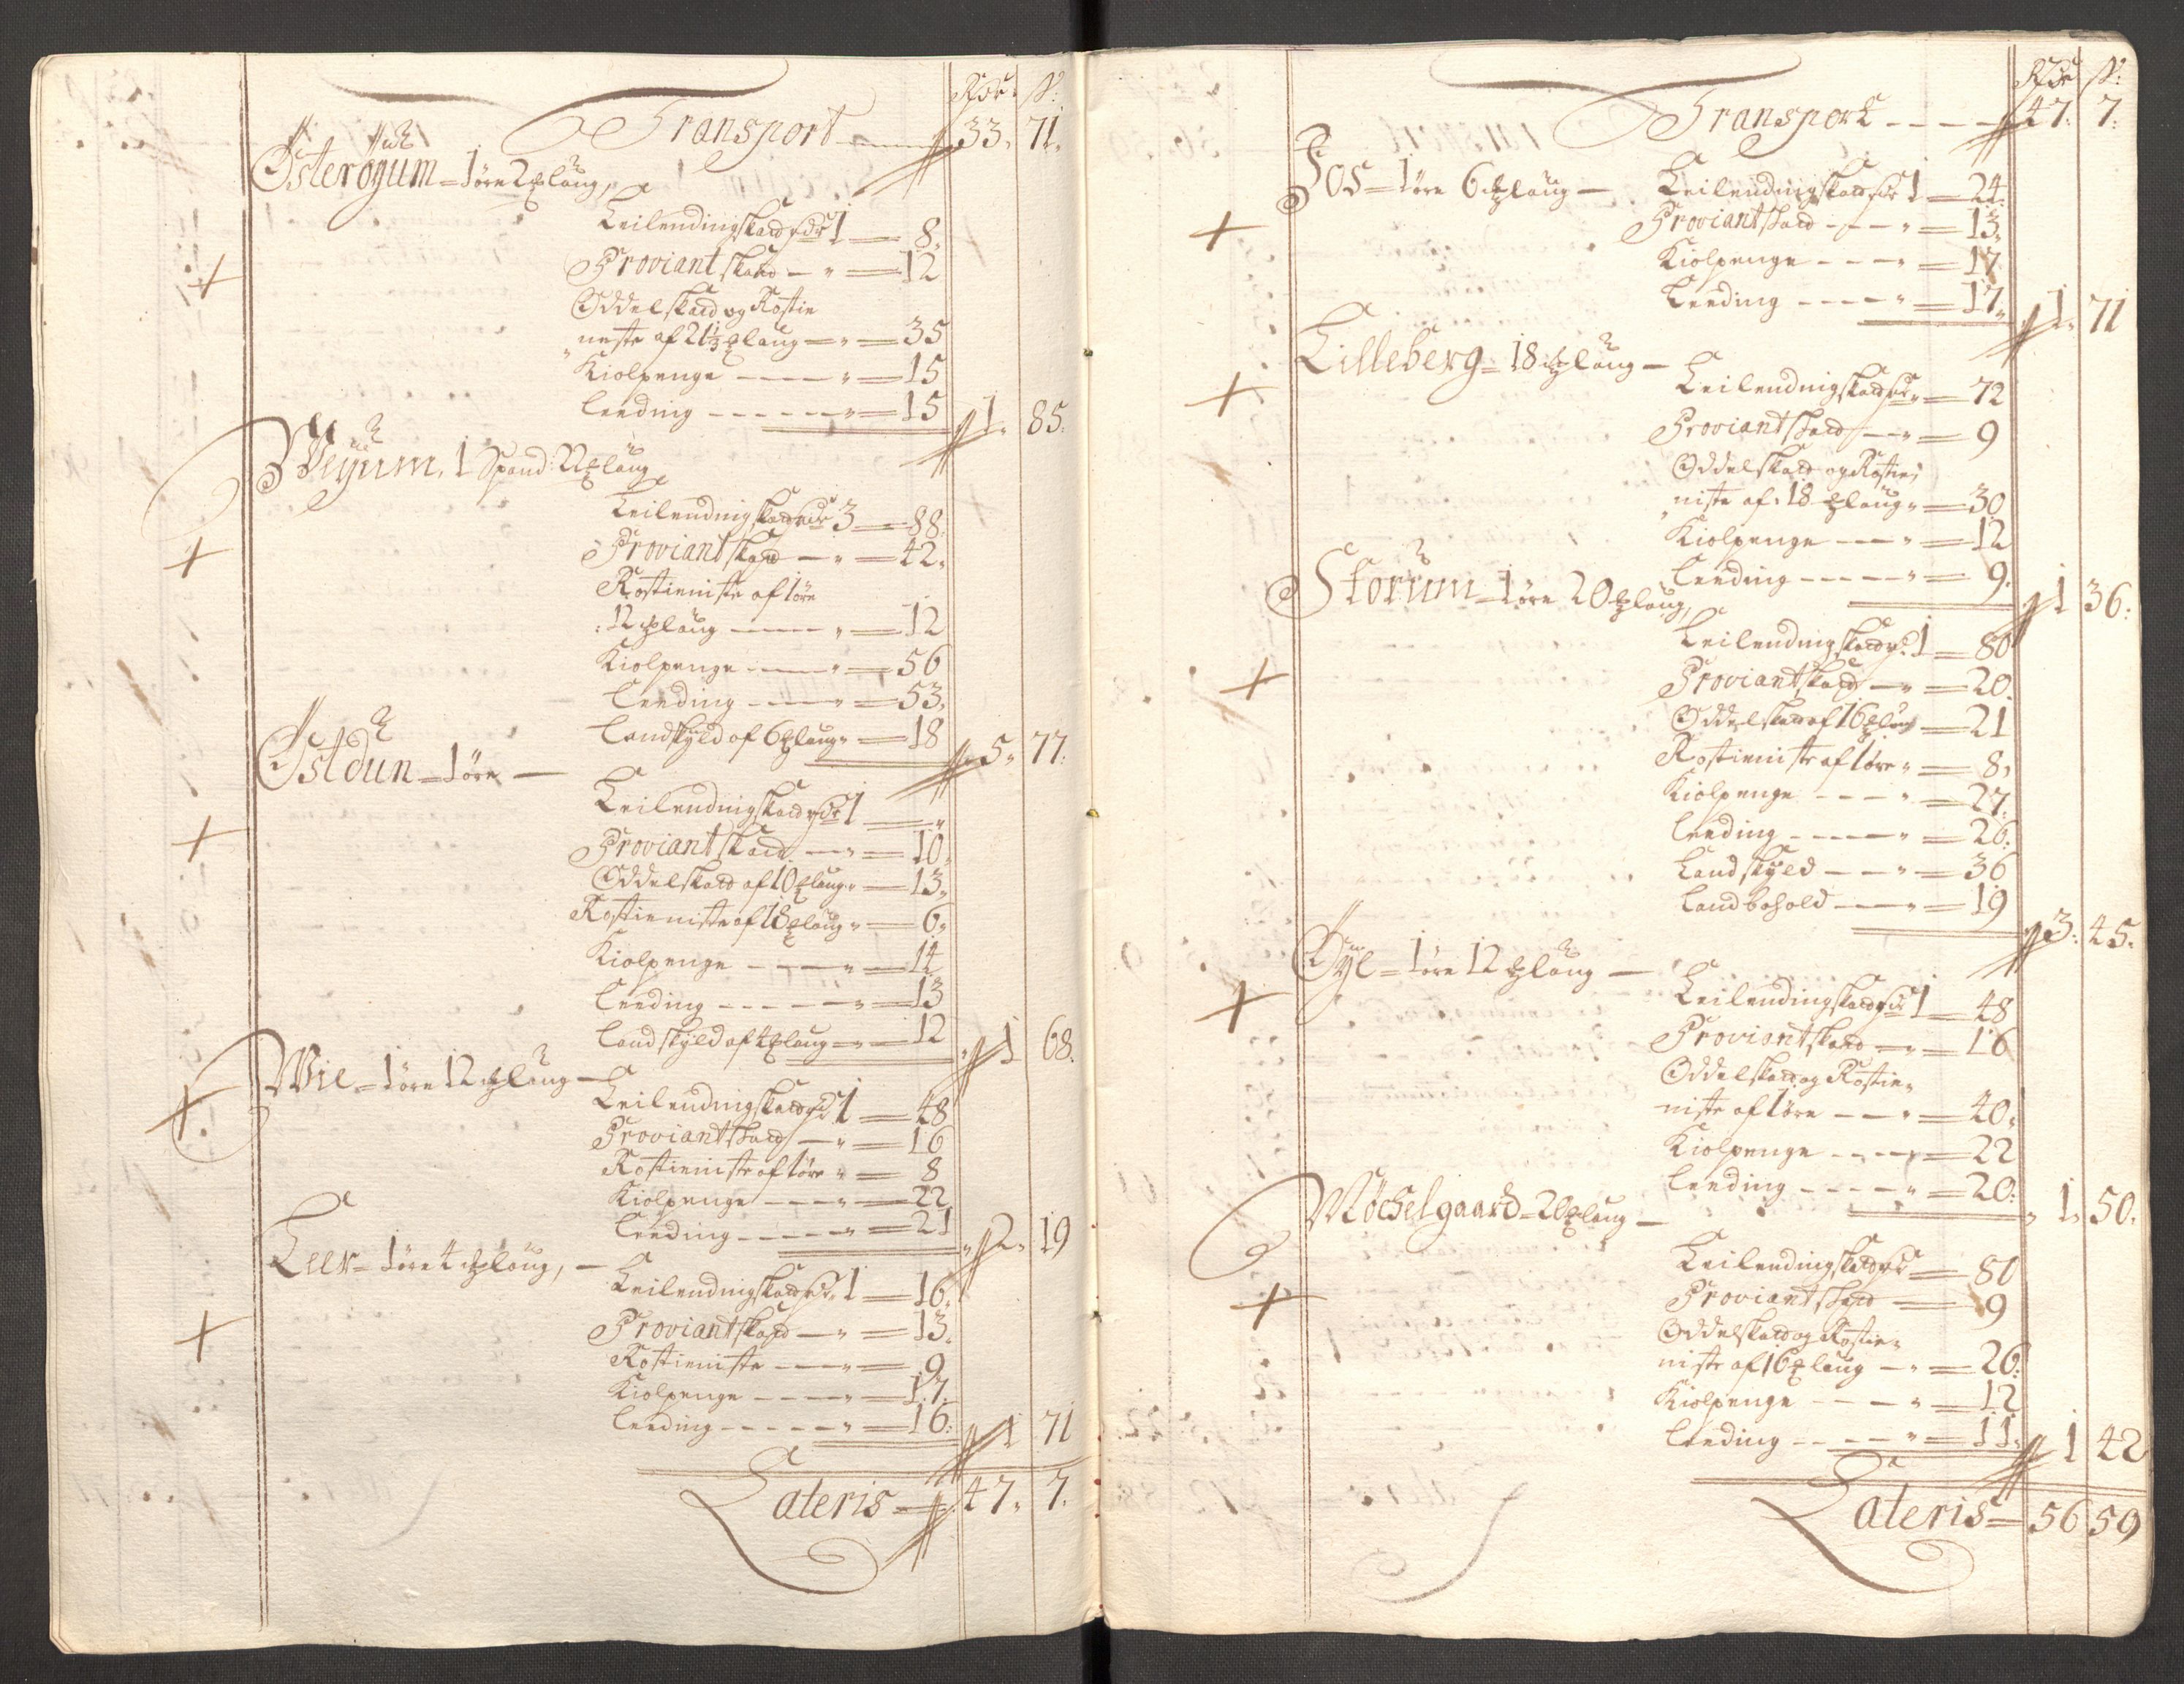 Rdr ß:
Transport 33. 71.
Østerøyum = 1 øre 2 ℔laug,
Leilendingskatt Rdr 1 = 8.
Proviantskatt — " = 12
Oddelskatt og Rostie
neste af 21⅓ ℔laug = " = 35
Kiolpenge — — " = 15
Leeding - - - - - " = 15
1. 85.
Wejum, 1 Spand: 22 ℔laug
Leilendingskatt Rdr 3 = 88.
Proviantskatt — " = 42.
Rostieniste af 1 øre
12 ℔laug — — " = 12
Kiolpenge — — " = 56
Leeding - - - " = 53.
Landskyld af 6 ℔laug " = 18
5. 77.
Østdun = 1 øre —
Leilendingskatt Rdr 1 — "
Proviantskatt — " = 10.
Oddelskatt af 10 ℔laug " = 13.
Rostieniste af 18 ℔laug " = 6.
Kiolpenge - - - " = 14
Leeding - - - - " = 13
Landskyld af 4 ℔laug = " = 12
1 68.
Wie = 1 øre 12 ℔laug —
Leilendingskatt Rd 1 = 48
Proviantskatt — " = 16
Rostieniste af 1 øre " = 8
Kiolpenge - - - " = 22
Leeding - - - - " = 21
2. 19
Leer = 1 øre 4 ℔laug, —
Leilendingskatt Rd 1 = 16.
Proviantskatt — " = 13.
Rostieniste - - - " = 9
Kiolpenge - - - - " = 17.
Leeding - - - - - " = 16.
1 71
Lateris = 47. 7.
Rdr ß:
Transport - - - - 47. 7.
Fos = 1 øre 6 ℔laug —
Leilendingskatt Rdr 1 = 24.
Proviantskatt - - - " = 13.
Kiolpenge - - - " = 17
Leeding - - - - " = 17.
1. 71
Lilleberg = 18 ℔laug —
Leilendingskatt Rdr " = 72
Proviantskatt — " = 9
Oddelskatt og Rostie,
niste af 18 ℔laug " = 30
Kiolpenge — — " = 12
Leeding - - - - - " = 9.
1 36.
Storum = 1 øre 20 ℔laug,
Leilendingskatt Rd 1 = 80
Proviantskatt — " = 20.
Oddelskatt af 16 ℔laug = 21
Rostieniste af 1 øre " = 8.
Kiolpenge - - - " = 27.
Leeding - - - - " = 26.
Landskyld — — " = 36
Landbohold — — " = 19
3. 45.
Øye = 1 øre 12 ℔laug —
Leilendingskatt Rdr 1 = 48
Proviantskatt — " = 16
Oddelskatt og Rostie-
niste af 1 øre — — " = 40.
Kiolpenge - - - " = 22
Leeding - - - - " = 20.
1. 50.
Møchelgaard = 20 ℔laug —
Leilendingskatt Rdr = 80
Proviantskatt = 9
Oddelskatt og Rostie-
niste af 16 ℔laug — " = 26.
Kiolpenge - - - " = 12
Leeding - - - - " = 11.
1 42
Lateris = 56 59